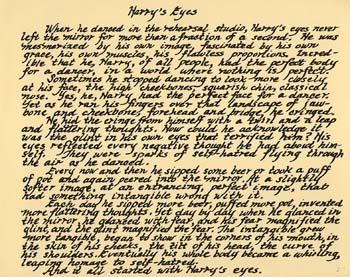 Harry's Eyes
When he danced in the rehearsal studio, Harry's eyes never
left the mirror for more than a fraction of a second. He was
mesmerized by his own image, fascinated by his own
grace, his own muscles, his flawless proportions. Incred-
ible that he, Harry, of all people, had the perfect body
for a dancer, in a world where nothing is perfect.
Sometimes he stopped dancing to look more closely,
at his face, the high cheekbones, squarish chin, classical
nose. Yes, he, Harry, had the perfect face for a dancer.
Yet as he ran his fingers over that landscape of jaw-
bone and cheekbone, forehead and bridge, he cringed.
He hid the cringe from himself with a twirl and a leap
and flattering thoughts. How could he acknowledge it
was the glint in his own eyes that terrified him? His
eyes reflected every negative thought he had about him-
self. They were sparks of self-hatred flying through
the air as he danced.
Every now and then he sipped some beer or took a puff
of pot and again peered into the mirror. At a slightly
softer image, at an entrancing, perfect image, that
had something intangible wrong with it.
Each day he sipped more beer, puffed more pot, invented
more flattering thoughts. Yet day by day when he glanced in
the mirror, he danced with fear, and his fear magnified the
glint, and the glint magnified the fear. The intangible grew
more tangible, began to show in the corners of his mouth, in
the skin of his cheeks, the tilt of his head, the curve of
his shoulders. Eventually his whole body became a whirling,
leaping homage to self-hatred.
And it all started with Harry's eyes.